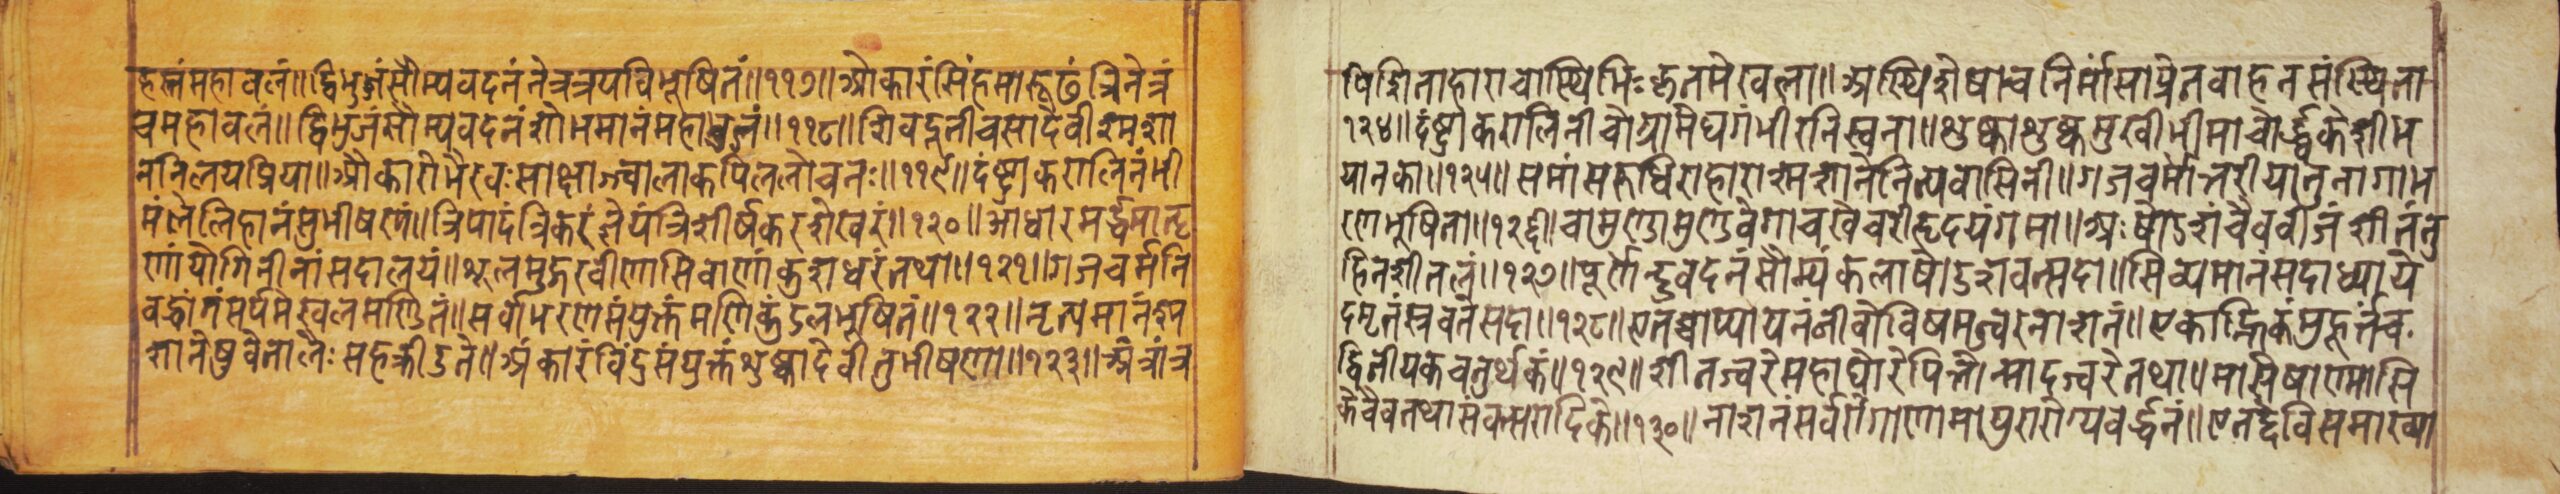 हस्तं महावलं॥ द्विभुजं सौम्यवदनं नेत्रत्रयविभूषितं॥११७॥ ओकारं सिंहमारूढं त्रिनेत्रं
च महावलं॥ द्विभुजं सौम्यवदनं शोभमानं महावलं॥११८॥ शिवदूती च सा देवी श्मशा
ननिलयप्रिया॥ औकारो भैरवः साक्षाज्ज्वालाकपिललोचनः॥११९॥ दंष्ट्राकरालिनं भी
मं लेलिहानं सुभीषणं॥ त्रिपादं त्रिकरं ज्ञेयं त्रिशीर्षकरशेखरं॥१२०॥ आधारमर्द्धमातृ
णां योगिनीनां सदालयं॥ शूलमुद्गरवीणासिवाणांकुशधरं तथा॥१२१॥ गजचर्मनि
वद्धांतं सर्पमेखलमण्डितं॥ सर्वाभरणसंयुक्तं मणिकुंडलभूषितं॥१२२॥ नृत्यमानं श्म
शानेषु वेतालैः सह क्रीडते॥ अंकारं विंदुसंयुक्तं शुष्कादेवी तु भीषणा॥१२३॥ अंत्रांत्र
पिशिताहारा चास्थिभिः कृतमेखला॥ अस्थिशेषा च निर्मांसा प्रेतवाहनसंस्थिता
१२४॥ दंष्ट्राकरालिनी चोग्रा मेघगंभीरनिस्वना॥ शुष्का शुष्कमुखी भीमा चोर्द्ध्वकेशी भ
यानका॥१२५॥ समांसरुधिराहारा श्मशाने नित्यवासिनी॥ गजचर्मोत्तरीया तु नागाभ
रणभूषिता॥१२६॥ चामुण्डा मुण्डवेगा च खेचरी हृदयंगमा॥ अः षोडशं चैव वीजं शीतं तु
हिनशीतलं॥१२७॥ पूर्णेन्दुवदनं सौम्यं कलाषोडशवत्सदा॥ सिच्यमानं सदा ध्याये
दमृतं स्त्रवते सदा॥१२८॥ एतच्चाप्यायनं जीवो विषमज्वरनाशनं॥ एकाह्निकं मुहूर्त्तं च
द्वितीयकचतुर्थकं॥१२९॥ शीतज्वरे महाघोरे पित्तोन्मादज्वरे तथा॥ मासिषाण्मासि
के चैव तथा संवत्सरादिके॥१३०॥ नाशनं सर्वरोगाणामायुरारोग्यवर्द्धनं॥ एतद्देवि समाख्या